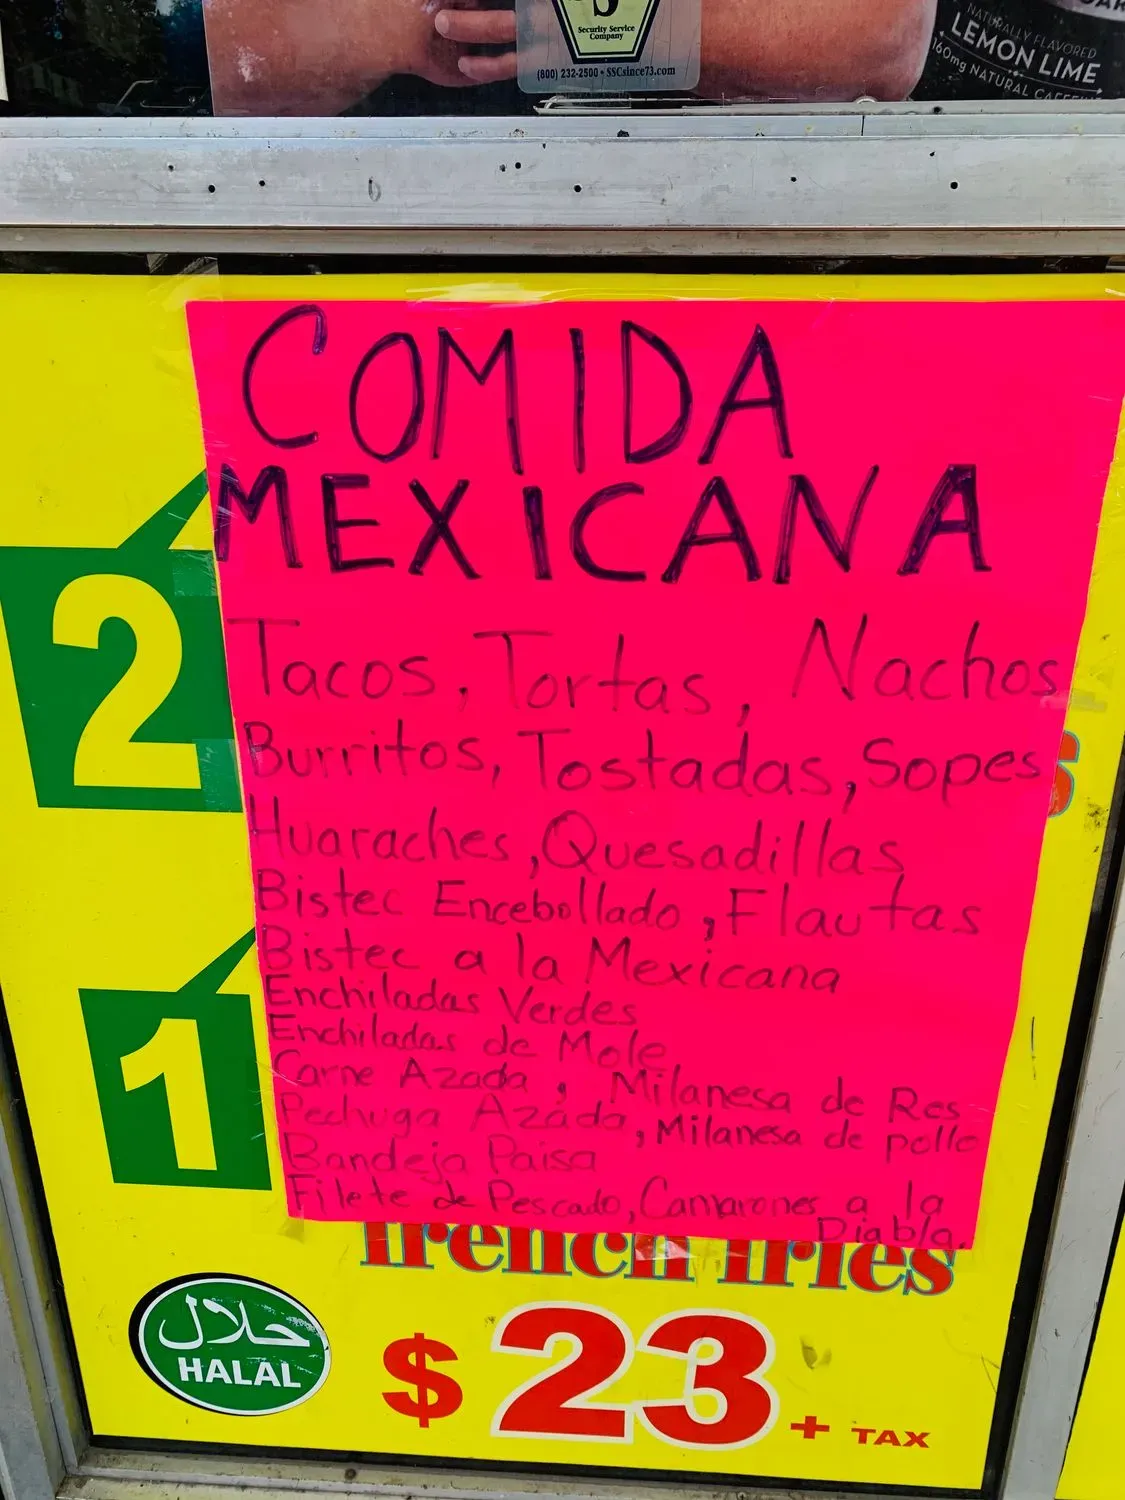 Security Service
Company
(800) 232-2500 • SSCsince73.com
NATURALLY FLAVORED
LEMON LIME
160mg NATURAL
COMIDA
MEXICANA
Tacos, Tortas, Nachos
Burritos, Tostadas, Sopes
Huaraches, Quesadillas
Bistec Encebollado, Flautas
Bistec a la Mexicana
Enchiladas Verdes
Enchiladas de Mole
Carne Azada, Milanesa de Res
Pechuga Azada, Milanesa de pollo
Bandeja Paisa
Filete de Pescado, Camarones a la
Diabla.
2
1
french fries
حلال
HALAL
$23 + TAX